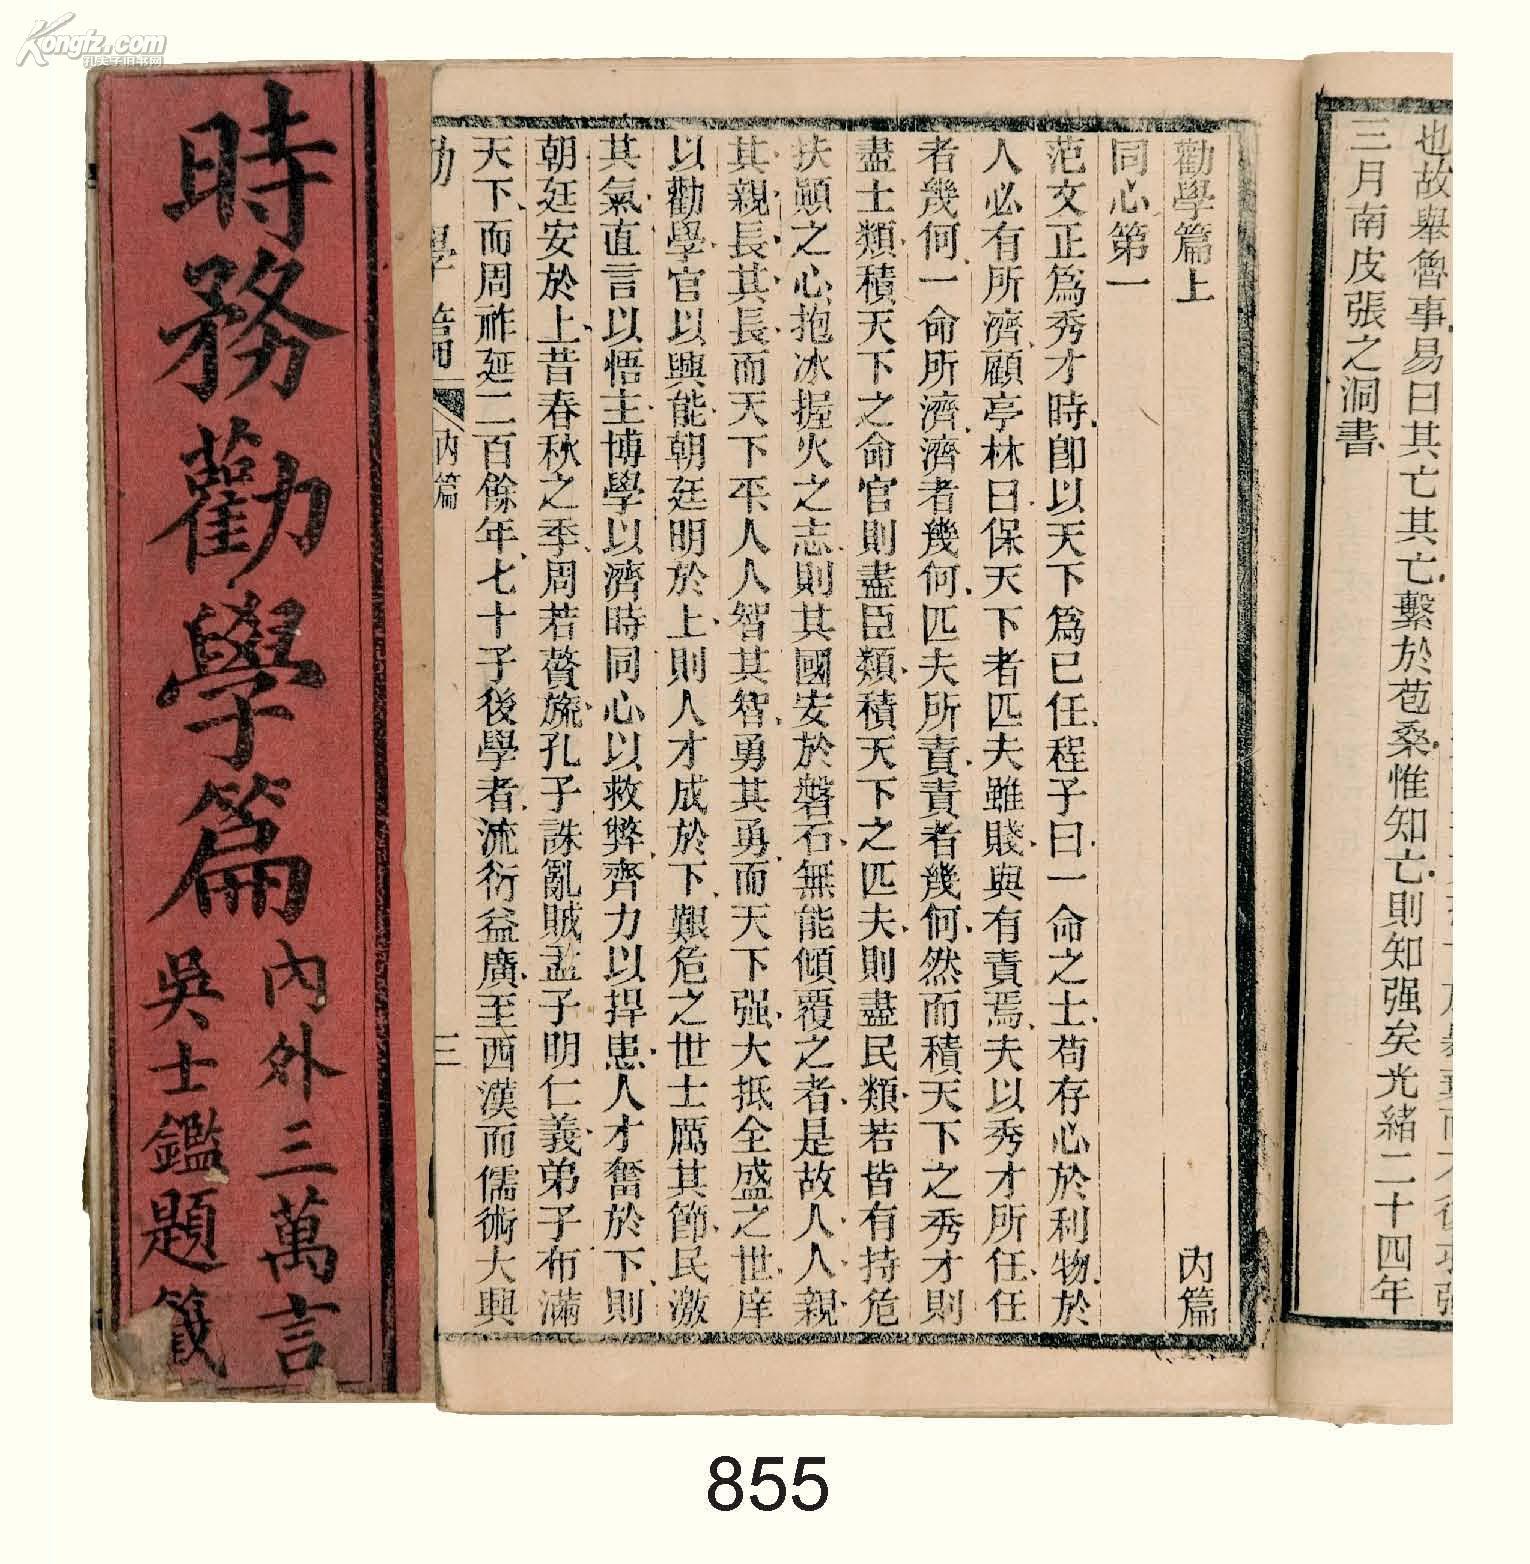 Kongfz.com
孔夫子旧书网
也故舉魯事易曰其亡其亡繫於苞桑惟知亡則知强矣光緒二十四年
三月南皮張之洞書
勸學篇上
內篇
同心第一
范文正爲秀才時即以天下爲己任程子曰一命之士苟存心於利物於
人必有所濟顧亭林曰保天下者匹夫雖賤與有責焉夫以秀才所任任
者幾何一命所濟濟者幾何匹夫所責責者幾何然而積天下之秀才則
盡士類積天下之命官則盡臣類積天下之匹夫則盡民類若皆有持危
扶顛之心抱冰握火之志則其國安於磐石無能傾覆之者是故人人親
其親長其長而天下平人人智其智勇其勇而天下强大抵全盛之世庠
以勸學官以興能朝廷明於上則人才成於下艱危之世士厲其節民激
其氣直言以悟主博學以濟時同心以救弊齊力以捍患人才奮於下則
朝廷安於上昔春秋之季周若贅旒孔子誅亂賊孟子明仁義弟子布滿
天下而周祚延二百餘年七十子後學者流衍益廣至西漢而儒術大興
勸學篇
內篇
三
時務勸學篇
內外三萬言
吳士鑑題籤
855